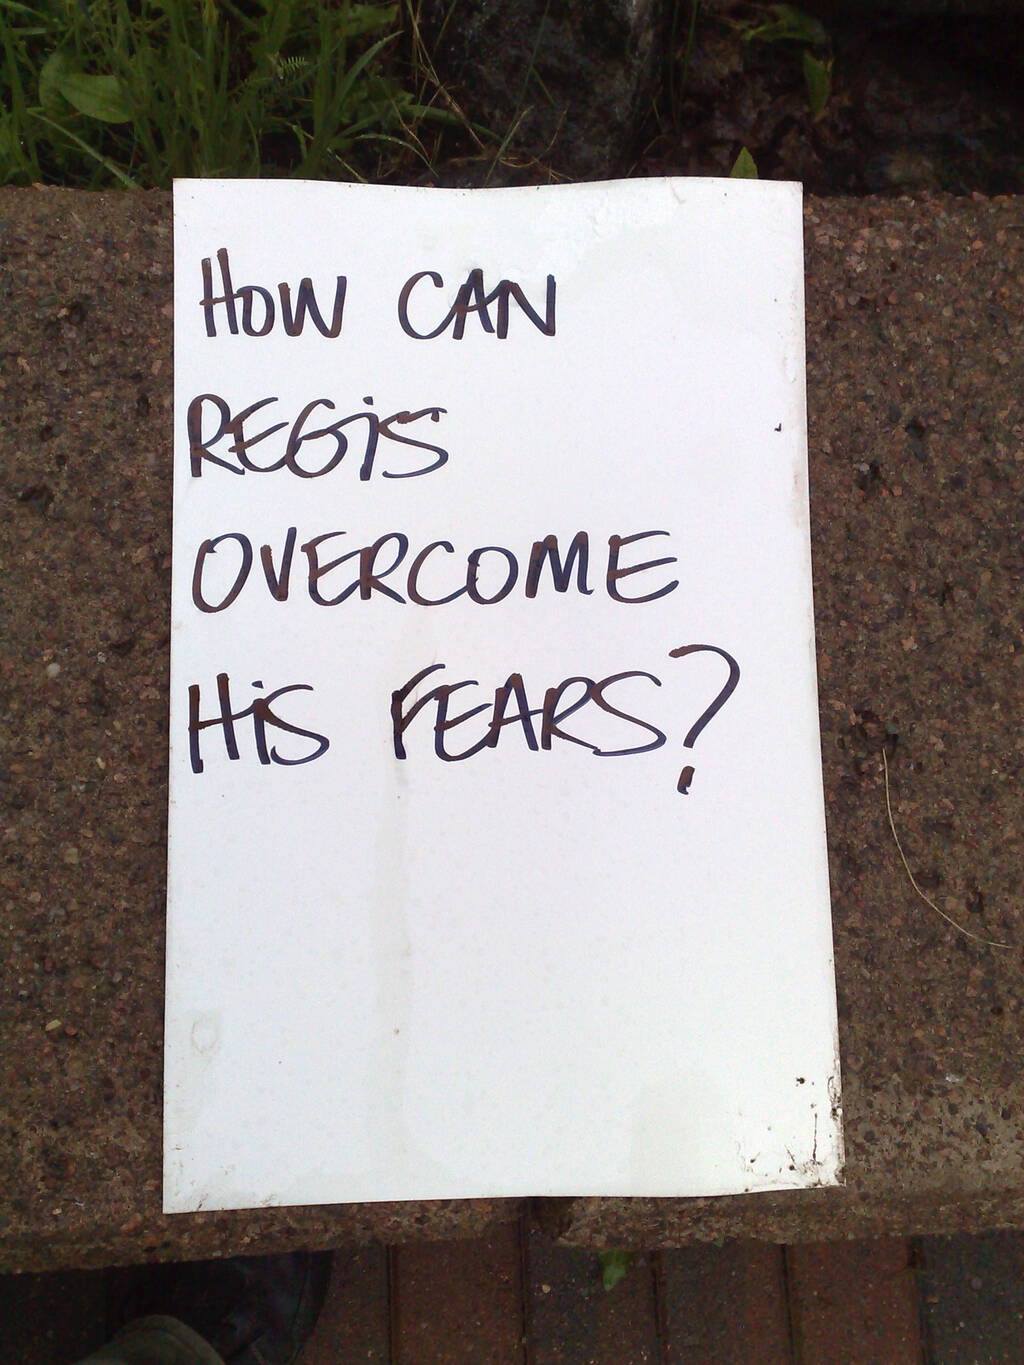 HOW CAN
REGiS
OVERCOME
HiS FEARS?